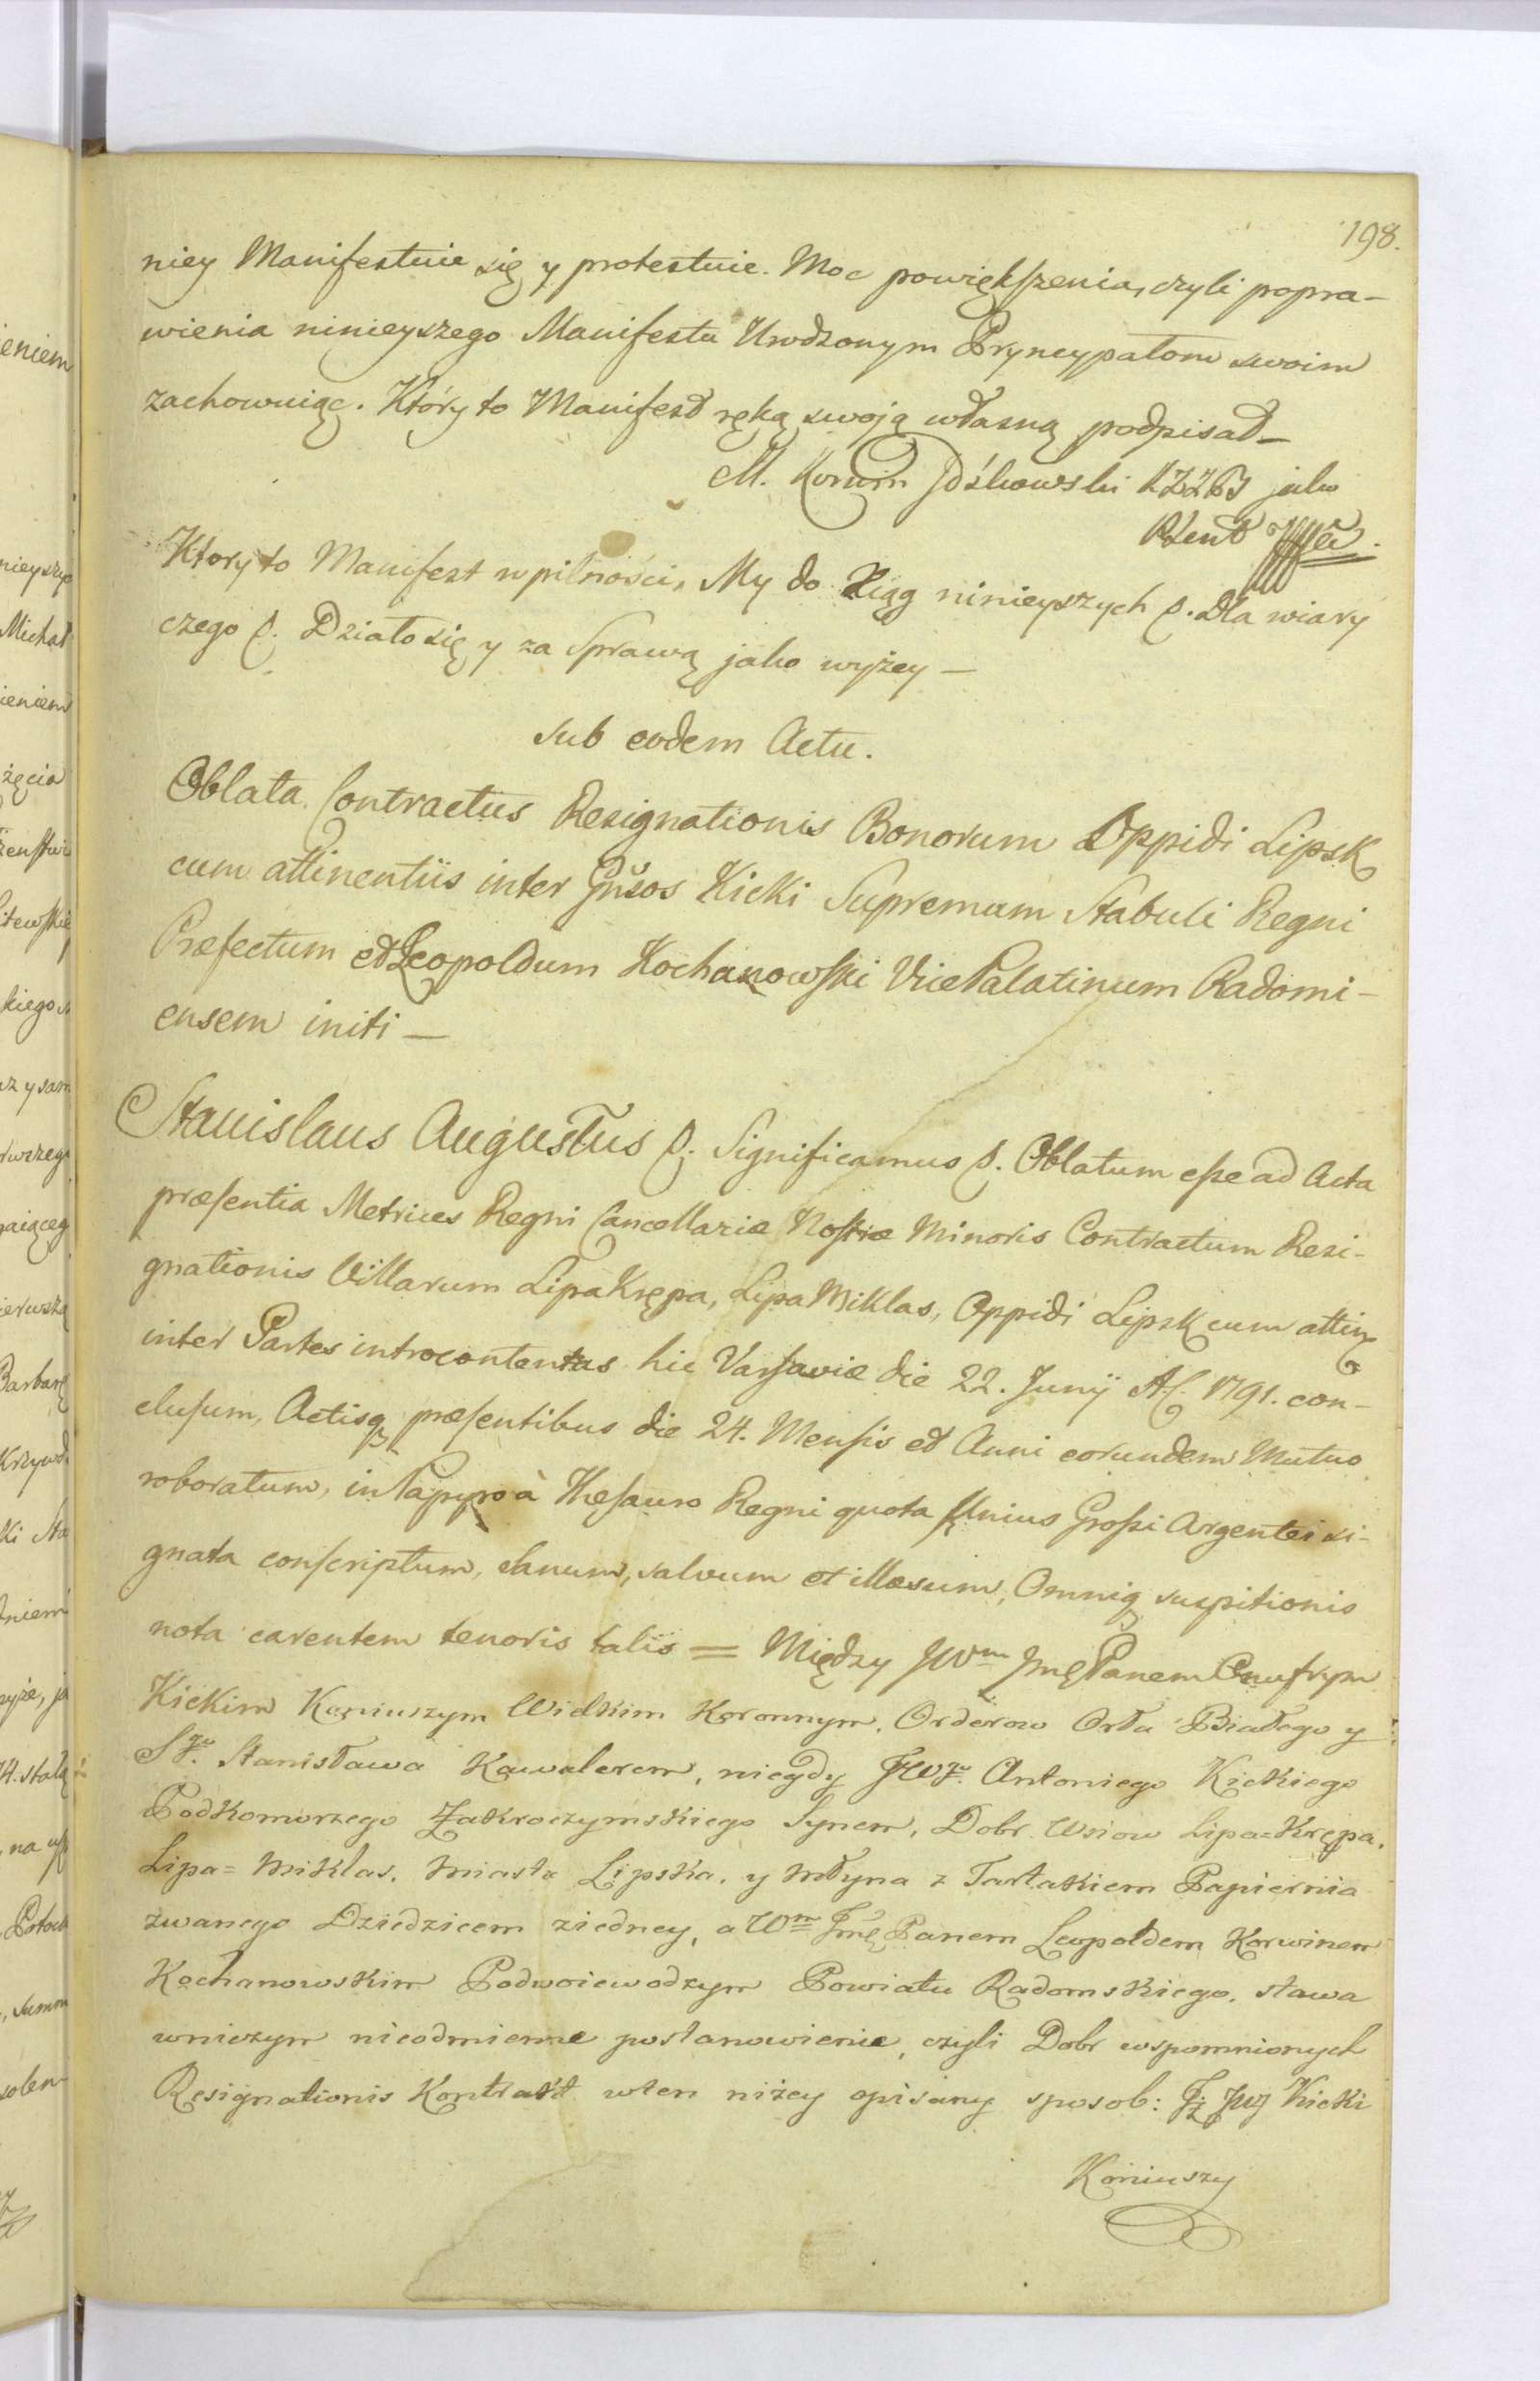 198.
niey Manifestuie się y protestuie. Moc powiększenia, czyli popra-
wienia ninieyszego Manifestu Urodzonym Pryncypałom swoim
zachowuiąc. Który to Manifest ręką swoją własną podpisał —
M. Korwin jako
Plent
Ktory to Manifest w pilności, My do Xiąg ninieyszych p. dla wiary
czego p. Działo się y za Sprawą jako wyżey —
sub eodem Actu.
Oblata Contractus Resignationis Bonorum Oppidi Lipsk
cum attinentiis inter Gnsos Kicki Supremum Stabuli Regni
Præfectum et Leopoldum Kochanowski Vice Palatinum Radomi-
ensem initi —
Stanislaus Augustus p. Significamus p. Oblatum esse ad Acta
præsentia Metrices Regni Cancellariæ Nostræ Minoris Contractum Resi-
gnationis Villarum Lipa Krępa, Lipa Miklas, Oppidi Lipsk cum attin
inter Partes introcontentas hic Varsaviæ die 22. Junÿ A. 1791. con-
clusum, Actisq præsentibus die 24. Mensis et Anni eorundem Mutuo
roboratum, in Papyro à Thesauro Regni quota Unius Grossi Argentei si-
gnata conscriptum, sanum, salvum et illæsum, Omniq suspitionis
nota carentem tenoris talis = Między JWm Jmę Panem Onufrym
Kickim Koniuszym Wielkim Koronnym, Orderow Orła Białego y
Sgo Stanisława Kawalerem, niegdy JWgo Antoniego Kickiego
Podkomorzego Zakroczymskiego Synem, Dobr Wsiow Lipa=Krępa,
Lipa=Miklas, Miasta Lipska, y Młyna z Tartakiem Papiernia
zwanego Dziedzicem ziedney, a Wm Jmę Panem Leopoldem Korwinem
Kochanowskim Podwoiewodzym Powiatu Radomskiego, stawa
wniczym nieodmienne postanowienie, czyli Dobr wspomnionych
Resignationis Kontrakt wten niżey opisany sposob: Jż JW Kicki
Koniuszy